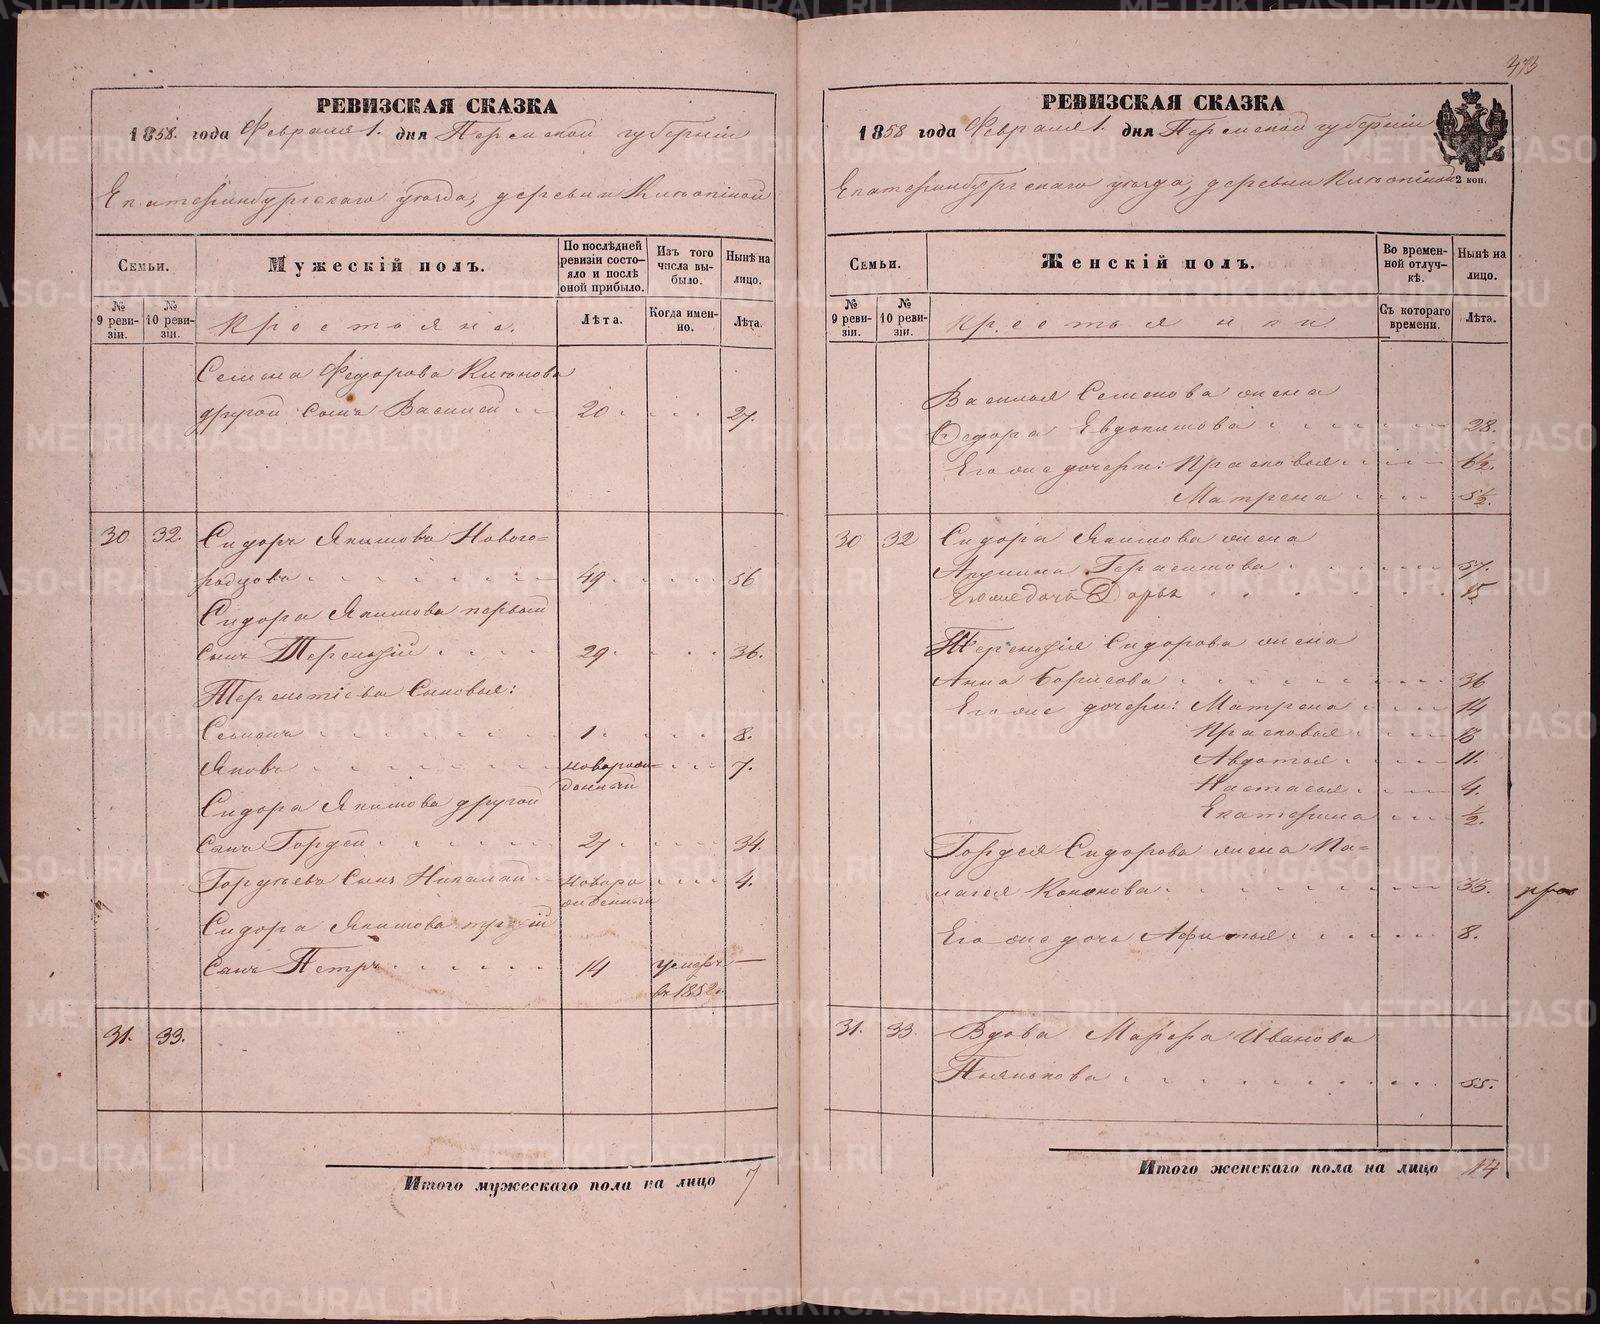 473
РЕВИЗСКАЯ СКАЗКА
1858 года Февраля 1. дня Пермской губернiи
Екатеринбургскаго уѣзда, деревни
Семьи.
Мужескiй полъ.
По послѣдней ревизiи состояло и послѣ оной прибыло.
Изъ того числа выбыло.
Нынѣ на лицо.
№ 9 ревизiи.
№ 10 ревизiи.
Крестьяне.
Лѣта.
Когда именно.
Лѣта.
Семена Федорова
другой сынъ Василiй 20. 27.
30 32. Сидоръ Якимовъ Новогородцовъ 49. 56
Сидора Якимова первый
сынъ Терентiй 29. 36.
Терентiевы сыновья:
Семенъ 1. 8.
Яковъ новорожденный 7.
Сидора Якимова другой
сынъ Гордей 27 34.
Гордѣевъ сынъ новорожденный 4.
Сидора Якимова третiй
сынъ Петръ 14 умеръ въ 1852. —
31. 33.
Итого мужескаго пола на лицо 7
РЕВИЗСКАЯ СКАЗКА
1858 года Февраля 1. дня Пермской губернiи
Екатеринбургскаго уѣзда, деревни
2 коп.
Семьи.
Женскiй полъ.
Во временной отлучкѣ.
Нынѣ на лицо.
№ 9 ревизiи.
№ 10 ревизiи.
Крестьянки
Съ котораго времени.
Лѣта.
Василья Семенова жена
Федора Евдокимова 28.
Его же дочери: Прасковья 6½.
Матрена 5½.
30 32 Сидора Якимова жена
Акулина Герасимова 57.
Его же дочь Дарья 15
Терентiя Сидорова жена
Анна Борисова 36
Его же дочери: Матрена 14
Прасковья 13
Авдотья 11.
Настасья 4.
Екатерина ½.
Гордея Сидорова жена Палагея Кононова 33.
Его же дочь Афимья 8.
31. 33. Вдова Марфа Иванова
Пьянкова 55.
Итого женскаго пола на лицо 14
METRIKI.GASO-URAL.RU